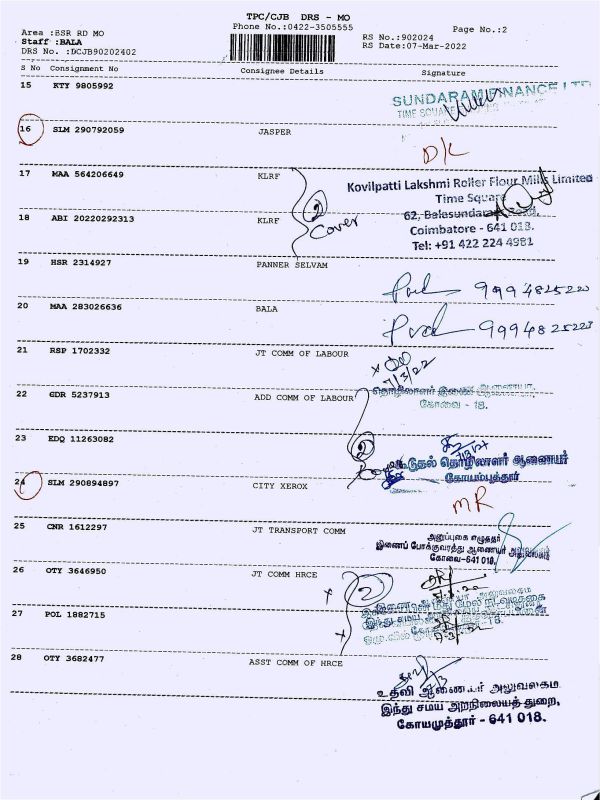 TPC/CJB DRS - MO
Phone No.:0422-3505555
Area :BSR RD MO
Staff :BALA
DRS No. :DCJB90202402
RS No.:902024
RS Date:07-Mar-2022
Page No.:2
S No Consignment No Consignee Details Signature
15 KTY 9805992
SUNDARAM FINANCE LTD
TIME SQUARE
16 SLM 290792059 JASPER
D/L
17 MAA 564206649 KLRF
Kovilpatti Lakshmi Roller Flour Mills Limited
Time Square
62, Balasundaram
Coimbatore - 641 018.
Tel: +91 422 224 4981
2
Cover
18 ABI 20220292313 KLRF
19 HSR 2314927 PANNER SELVAM
9994825220
20 MAA 283026636 BALA
9994825223
21 RSP 1702332 JT COMM OF LABOUR
7/3/22
22 GDR 5237913 ADD COMM OF LABOUR
தொழிலாளர் இணை ஆணையர்,
கோவை - 18.
2
23 EDQ 11263082
கூடுதல் தொழிலாளர் ஆணையர்
கோயம்புத்தூர்
24 SLM 290894897 CITY XEROX
MR
25 CNR 1612297 JT TRANSPORT COMM
அனுப்புகை எழுத்தர்
இணைப் போக்குவரத்து ஆணையர் அலுவலகம்
கோவை-641 018.
26 OTY 3646950 JT COMM HRCE
2
27 POL 1882715
28 OTY 3682477 ASST COMM OF HRCE
உதவி ஆணையர் அலுவலகம்
இந்து சமய அறநிலையத் துறை,
கோயமுத்தூர் - 641 018.